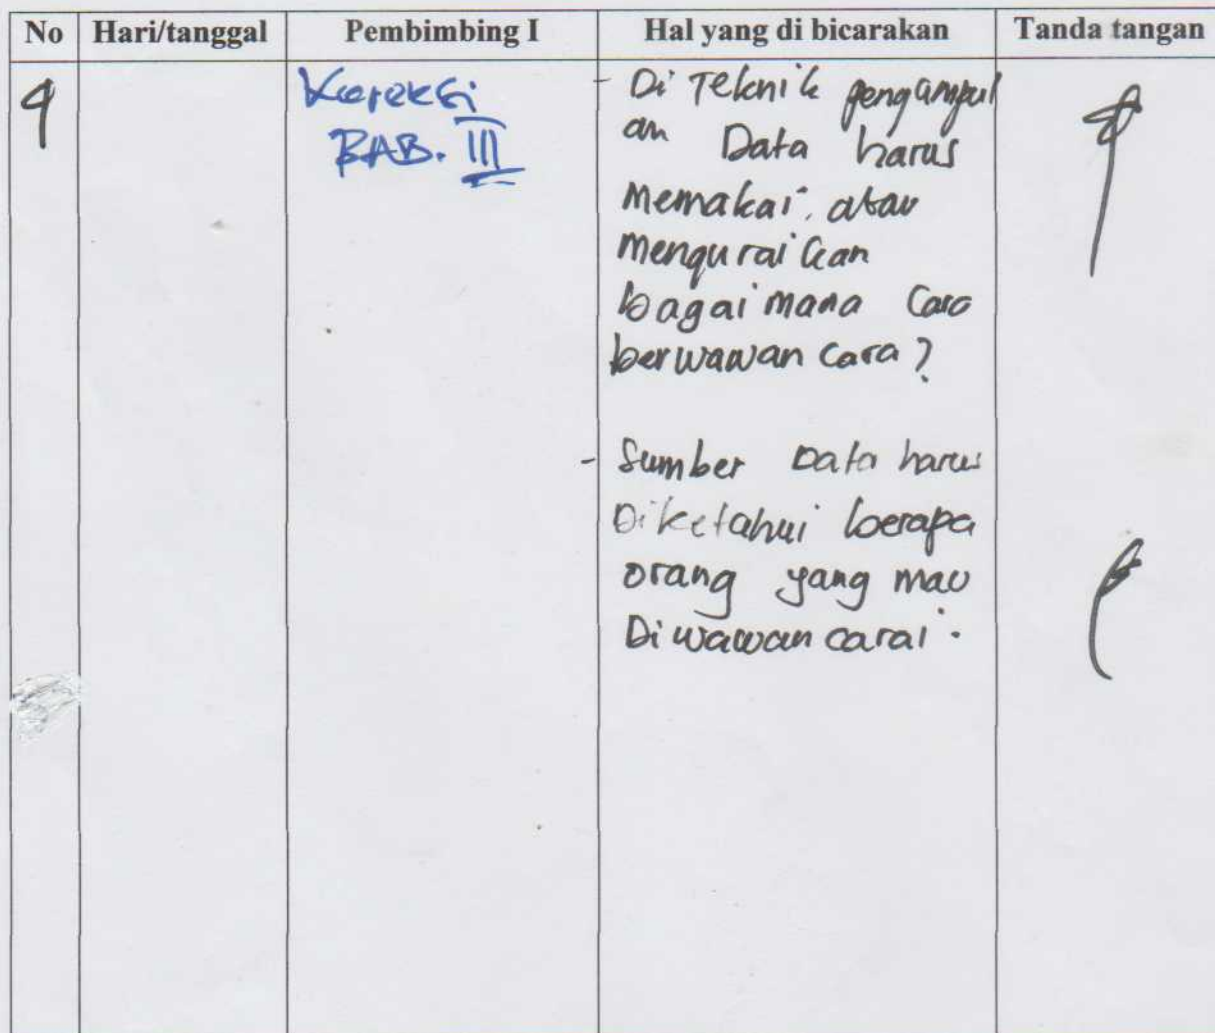 No Hari/tanggal Pembimbing I Hal yang di bicarakan Tanda tangan
4
Koreksi
BAB. III
- Di Teknik pengumpul
an Data harus
memakai. atau
menguraikan
bagaimana Cara
berwawancara?
- Sumber Data harus
Diketahui berapa
orang yang mau
Diwawancarai.